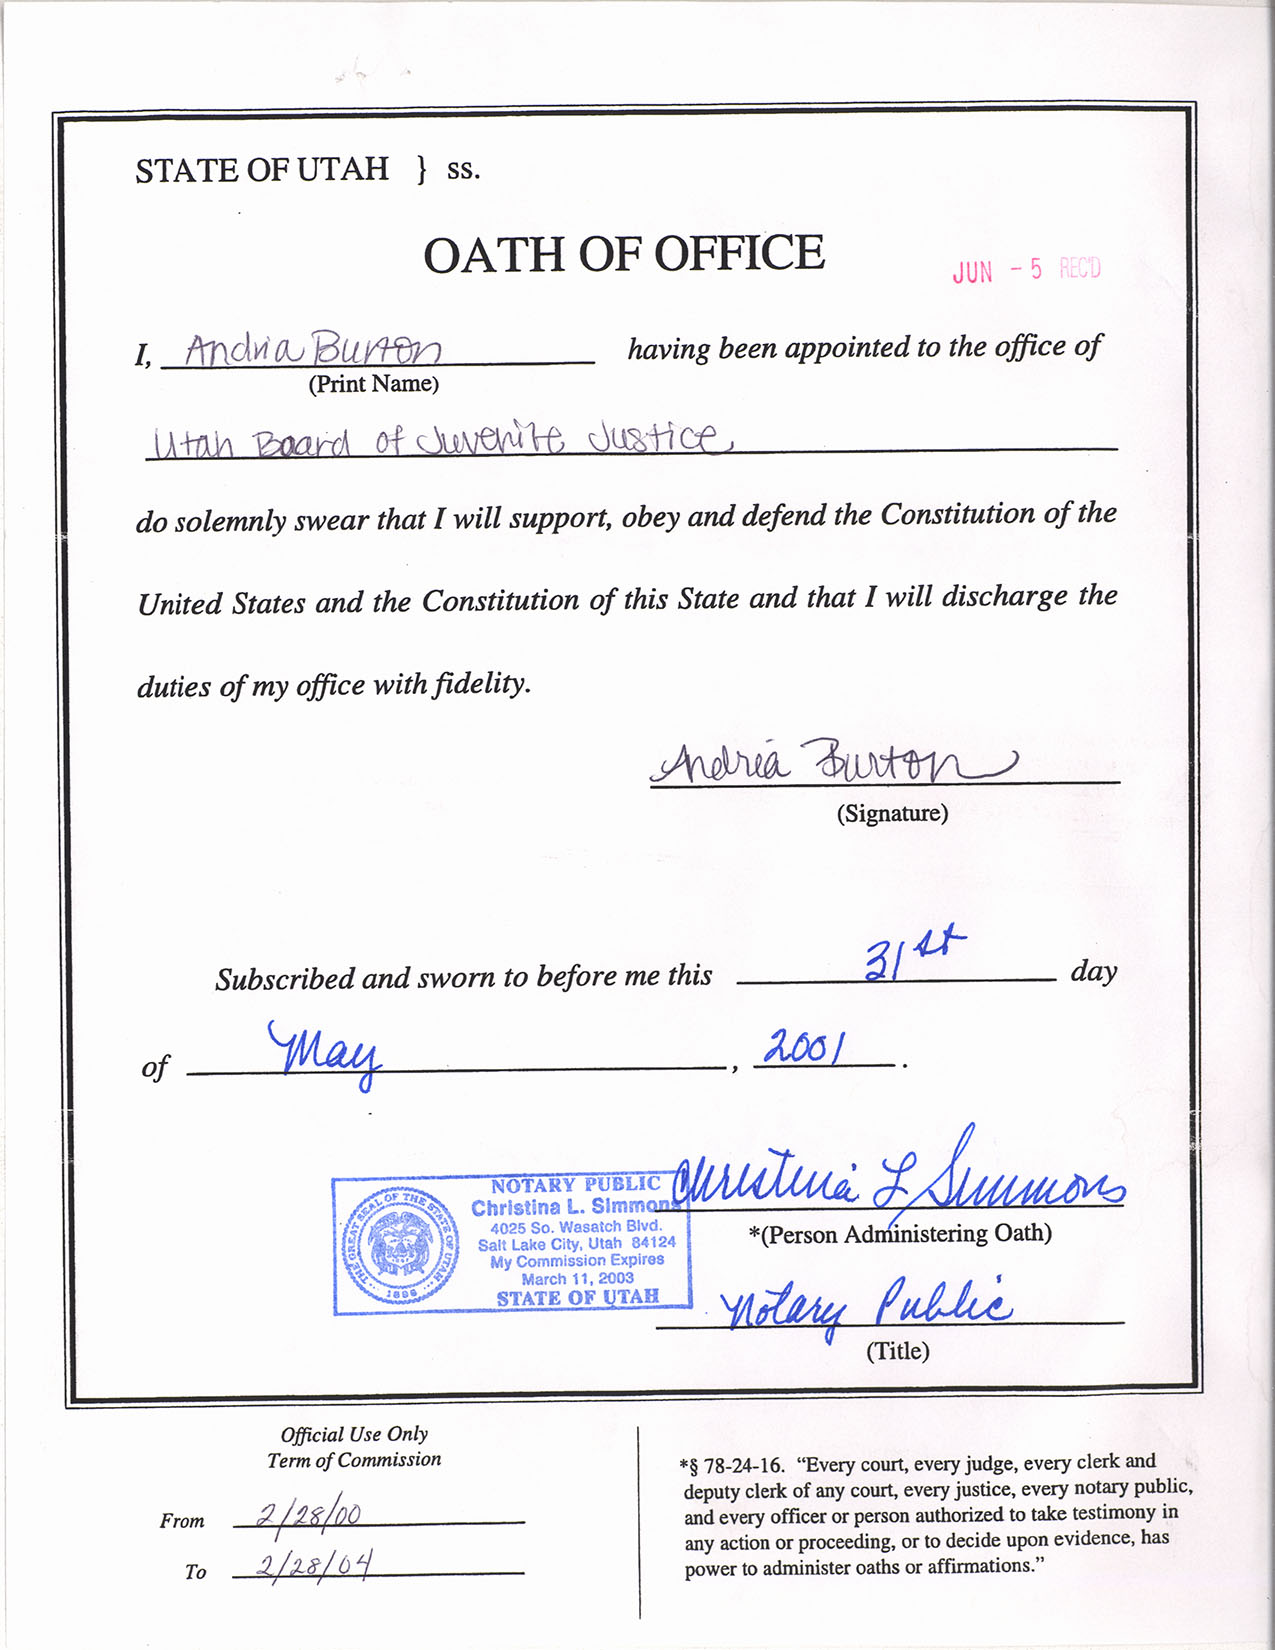 STATE OF UTAH } ss.
OATH OF OFFICE
JUN - 5 REC'D
I, Andria Burton having been appointed to the office of
(Print Name)
Utah Board of Juvenile Justice
do solemnly swear that I will support, obey and defend the Constitution of the
United States and the Constitution of this State and that I will discharge the
duties of my office with fidelity.
Andria Burton
(Signature)
Subscribed and sworn to before me this 31st day
of May, 2001.
Christina L Simmons
*(Person Administering Oath)
Notary Public
(Title)
NOTARY PUBLIC
Christina L. Simmons
4025 So. Wasatch Blvd.
Salt Lake City, Utah 84124
My Commission Expires
March 11, 2003
STATE OF UTAH
THE GREAT SEAL OF THE STATE OF UTAH
1896
Official Use Only
Term of Commission
From 2/28/00
To 2/28/04
*§ 78-24-16. “Every court, every judge, every clerk and
deputy clerk of any court, every justice, every notary public,
and every officer or person authorized to take testimony in
any action or proceeding, or to decide upon evidence, has
power to administer oaths or affirmations.”